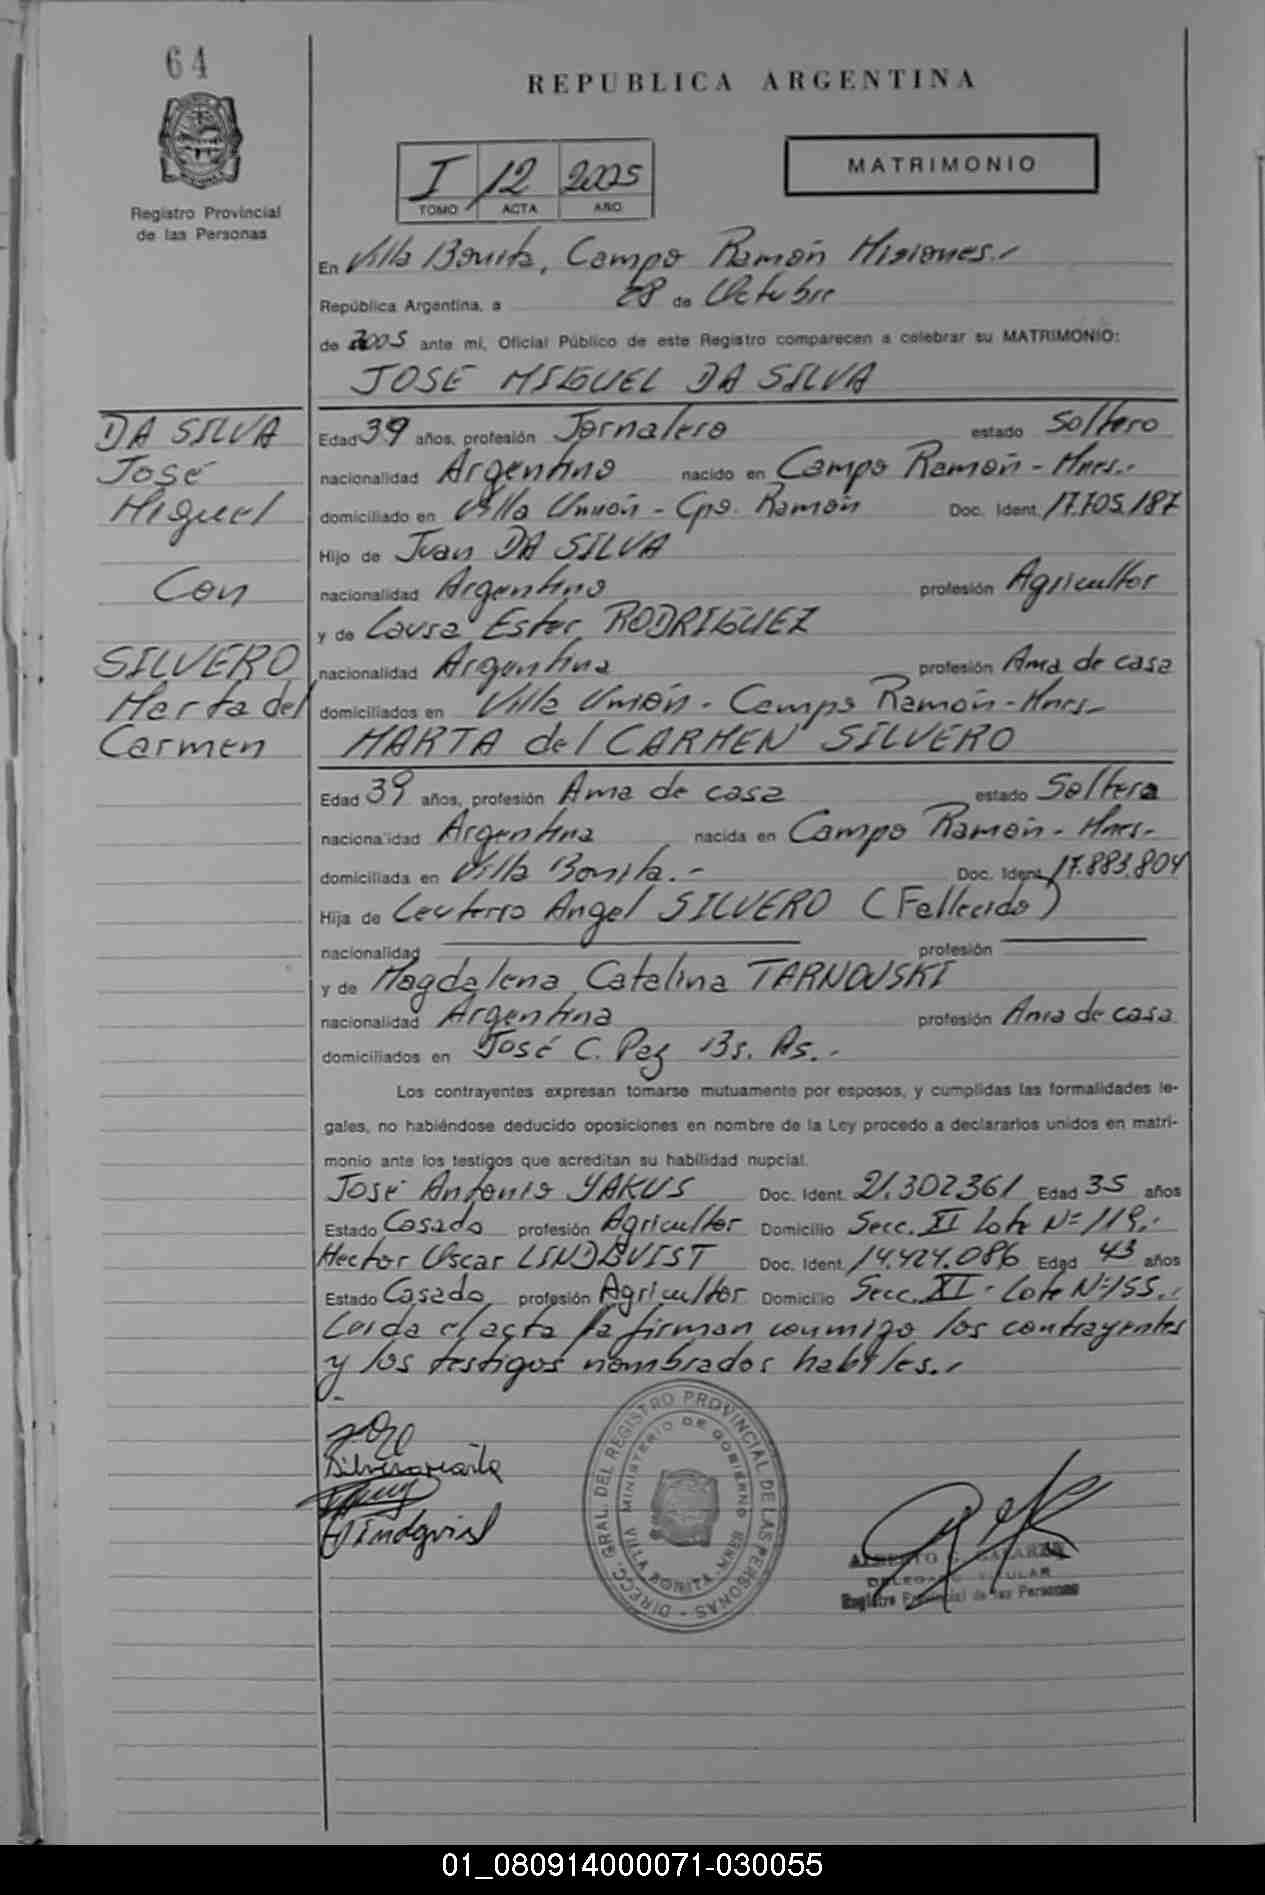 64
REPUBLICA ARGENTINA
Registro Provincial
de las Personas
I 12 2005
TOMO ACTA AÑO
MATRIMONIO
En Villa Bonita, Campo Ramón Misiones.-
República Argentina, a 28 de Octubre
de 2005 ante mi, Oficial Público de este Registro comparecen a celebrar su MATRIMONIO:
JOSE MIGUEL DA SILVA
DA SILVA
José
Miguel
Con
SILVERO
Marta del
Carmen
Edad 39 años, profesión Jornalero estado Soltero
nacionalidad Argentino nacido en Campo Ramón - Mnes.-
domiciliado en Villa Unión - Cpo. Ramón Doc. Ident. 17.705.187
Hijo de Juan DA SILVA
nacionalidad Argentino profesión Agricultor
y de Laura Ester RODRIGUEZ
nacionalidad Argentina profesión Ama de casa
domiciliados en Villa Unión - Campo Ramón - Mnes.-
MARTA del CARMEN SILVERO
Edad 39 años, profesión Ama de casa estado Soltera
nacionalidad Argentina nacida en Campo Ramón - Mnes.-
domiciliada en Villa Bonita.- Doc. Ident. 17.883.804
Hija de Leuterio Angel SILVERO (Fallecido)
nacionalidad profesión
y de Magdalena Catalina TARNOWSKI
nacionalidad Argentina profesión Ama de casa
domiciliados en José C. Paz Bs. As.-
Los contrayentes expresan tomarse mutuamente por esposos, y cumplidas las formalidades le-
gales, no habiéndose deducido oposiciones en nombre de la Ley procedo a declararlos unidos en matri-
monio ante los testigos que acreditan su habilidad nupcial.
José Antonio YAKUS Doc. Ident. 21.302.361 Edad 35 años
Estado Casado profesión Agricultor Domicilio Secc. XI Lote Nº 119.-
Hector Oscar LINDQVIST Doc. Ident. 14.424.086 Edad 43 años
Estado Casado profesión Agricultor Domicilio Secc. XI - Lote Nº 155.-
Leida el acta la firman conmigo los contrayentes
y los testigos nombrados habiles.-
Silvero marta
Lindqvist
DIRECC. GRAL. DEL REGISTRO PROVINCIAL DE LAS PERSONAS
MINISTERIO DE GOBIERNO
VILLA BONITA - MNES
DELEGADO TITULAR
Registro Provincial de las Personas
01_080914000071-030055